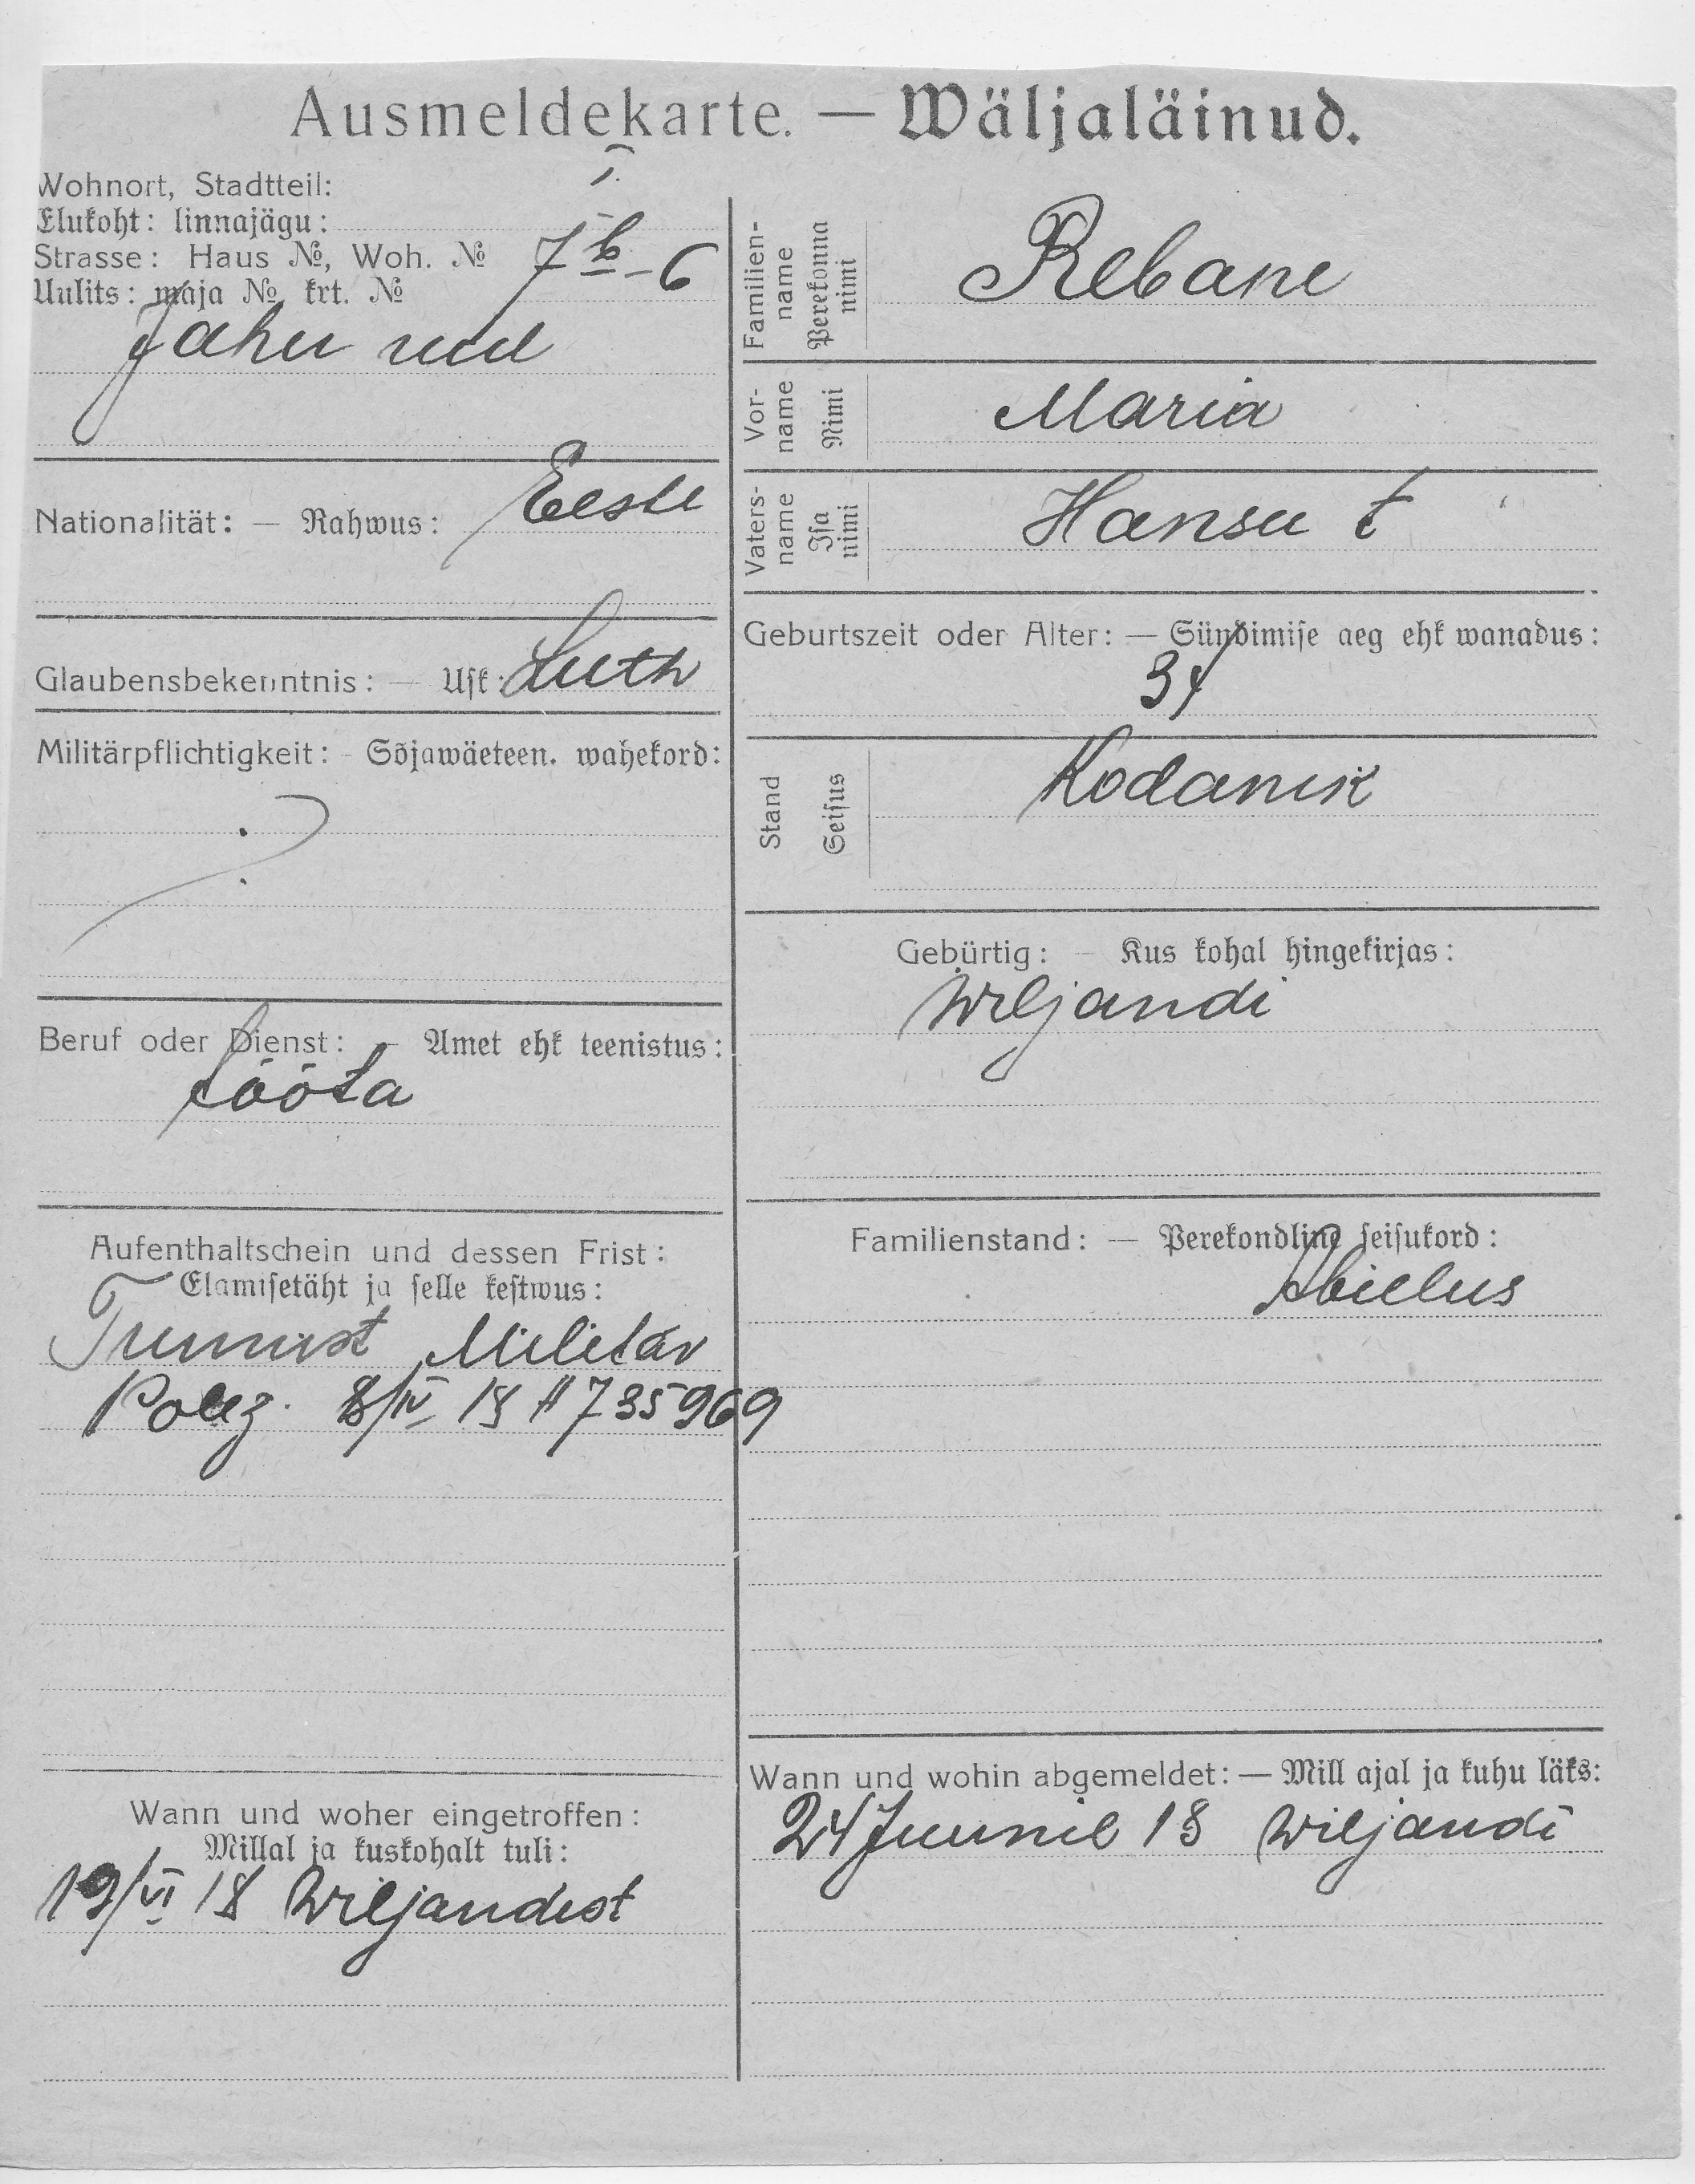 Ausmeldekarte. — Wäljaläinud.
Wohnort, Stadtteil: I.
Elukoht: linnajägu:
Strasse: Haus №, Woh. № 7 b - 6
Uulits: maja №, krt. №
Jahu uul
Nationalität: — Rahwus: Eesti
Glaubensbekenntnis: — Usk: Luth
Militärpflichtigkeit: - Sõjawäeteen. wahekord:
Beruf oder Dienst: - Amet ehk teenistus:
tööta
Aufenthaltschein und dessen Frist:
Elamisetäht ja selle kestwus:
Tunnist Militär
Poliz. 8/IV 18 # 735969
Wann und woher eingetroffen:
Millal ja kuskohalt tuli:
19/VI 18 Wiljandist
Familien-name Perekonna nimi Rebane
Vor-name Nimi Maria
Vaters-name Isa nimi Hansu t
Geburtszeit oder Alter: — Sündimise aeg ehk wanadus:
34
Stand Seisus Kodanik
Gebürtig: — Kus kohal hingekirjas:
Wiljandi
Familienstand: — Perekondline seisukord:
Abielus
Wann und wohin abgemeldet: — Mill ajal ja kuhu läks:
24 Juunil 18 Wiljandi